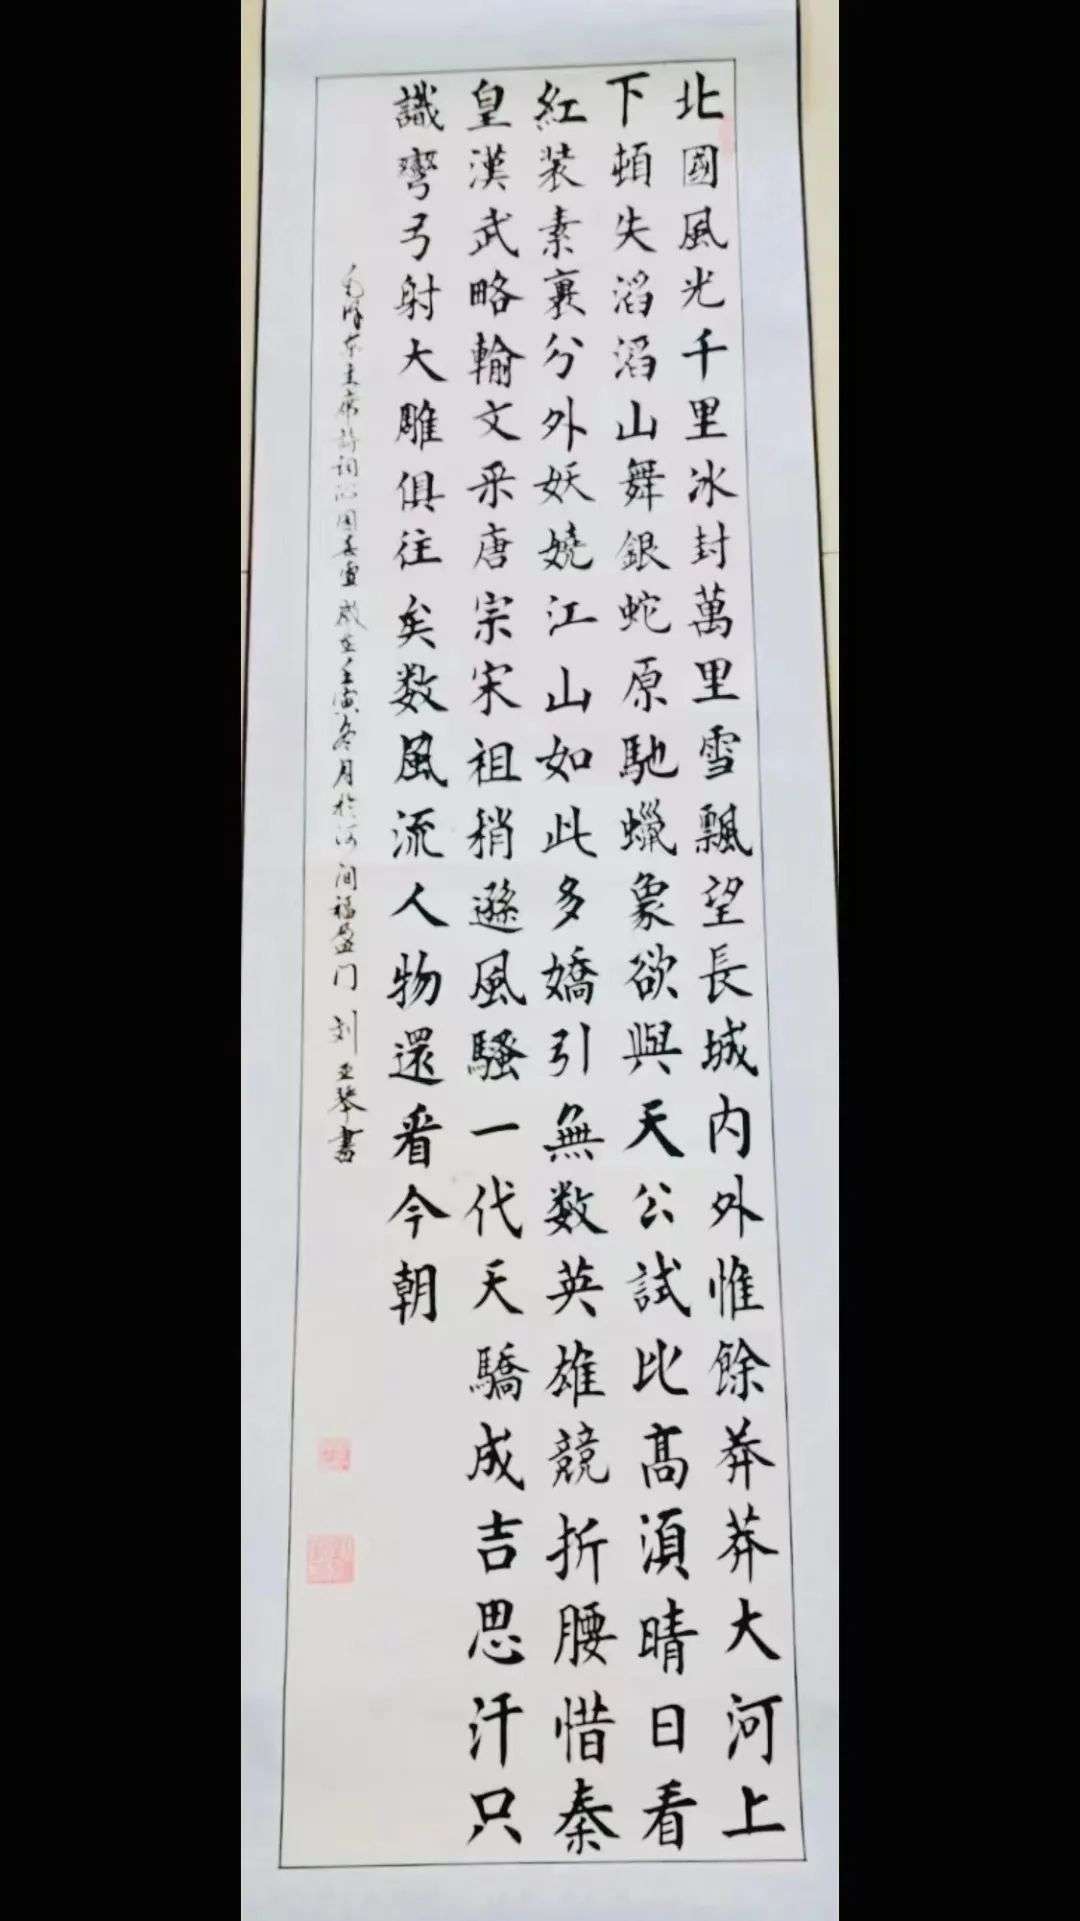 北國風光千里冰封萬里雪飄望長城内外惟餘莽莽大河上
下頓失滔滔山舞銀蛇原馳蠟象欲與天公試比高須晴日看
紅装素裹分外妖嬈江山如此多嬌引無数英雄競折腰惜秦
皇漢武略輸文采唐宗宋祖稍遜風騷一代天驕成吉思汗只
識彎弓射大雕俱往矣数風流人物還看今朝
毛泽东主席詩詞沁园春雪歲在壬寅冬月於河间福盈门 刘亚琴書